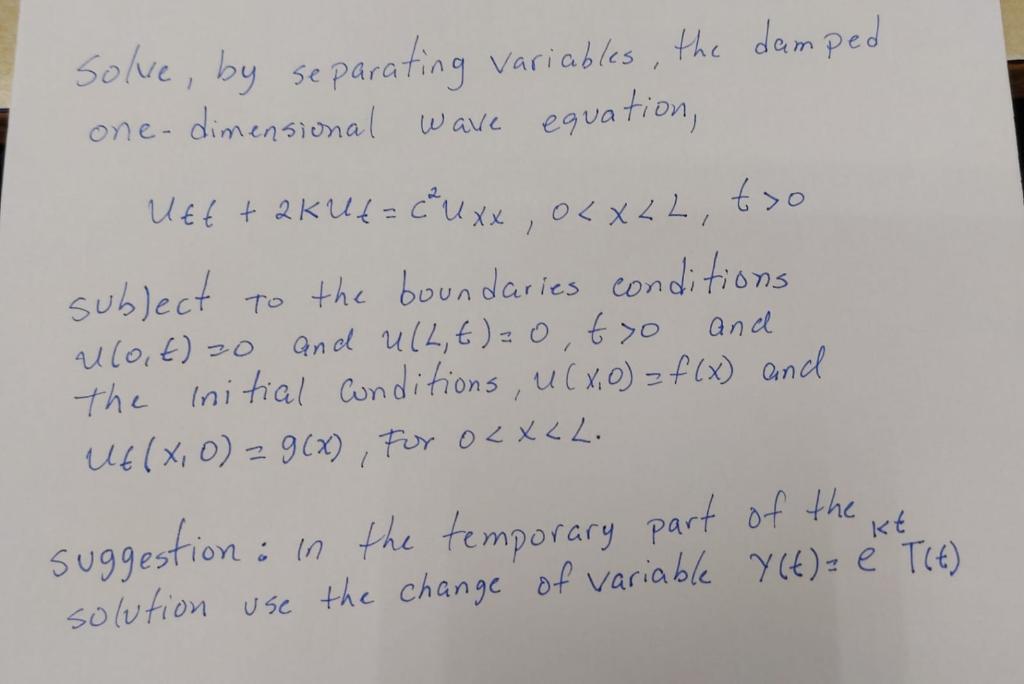 Solve, by separating variables, the damped
one-dimensional wave equation,
Utt + 2KUt = c²Uxx, 0<x<L, t>0
subject to the boundaries conditions
u(0,t)=0 and u(L,t)=0, t>0 and
the initial conditions, u(x,0)=f(x) and
Ut(x,0) = g(x), For 0<x<L.
suggestion: in the temporary part of the
solution use the change of variable Y(t)= e^{kt} T(t)